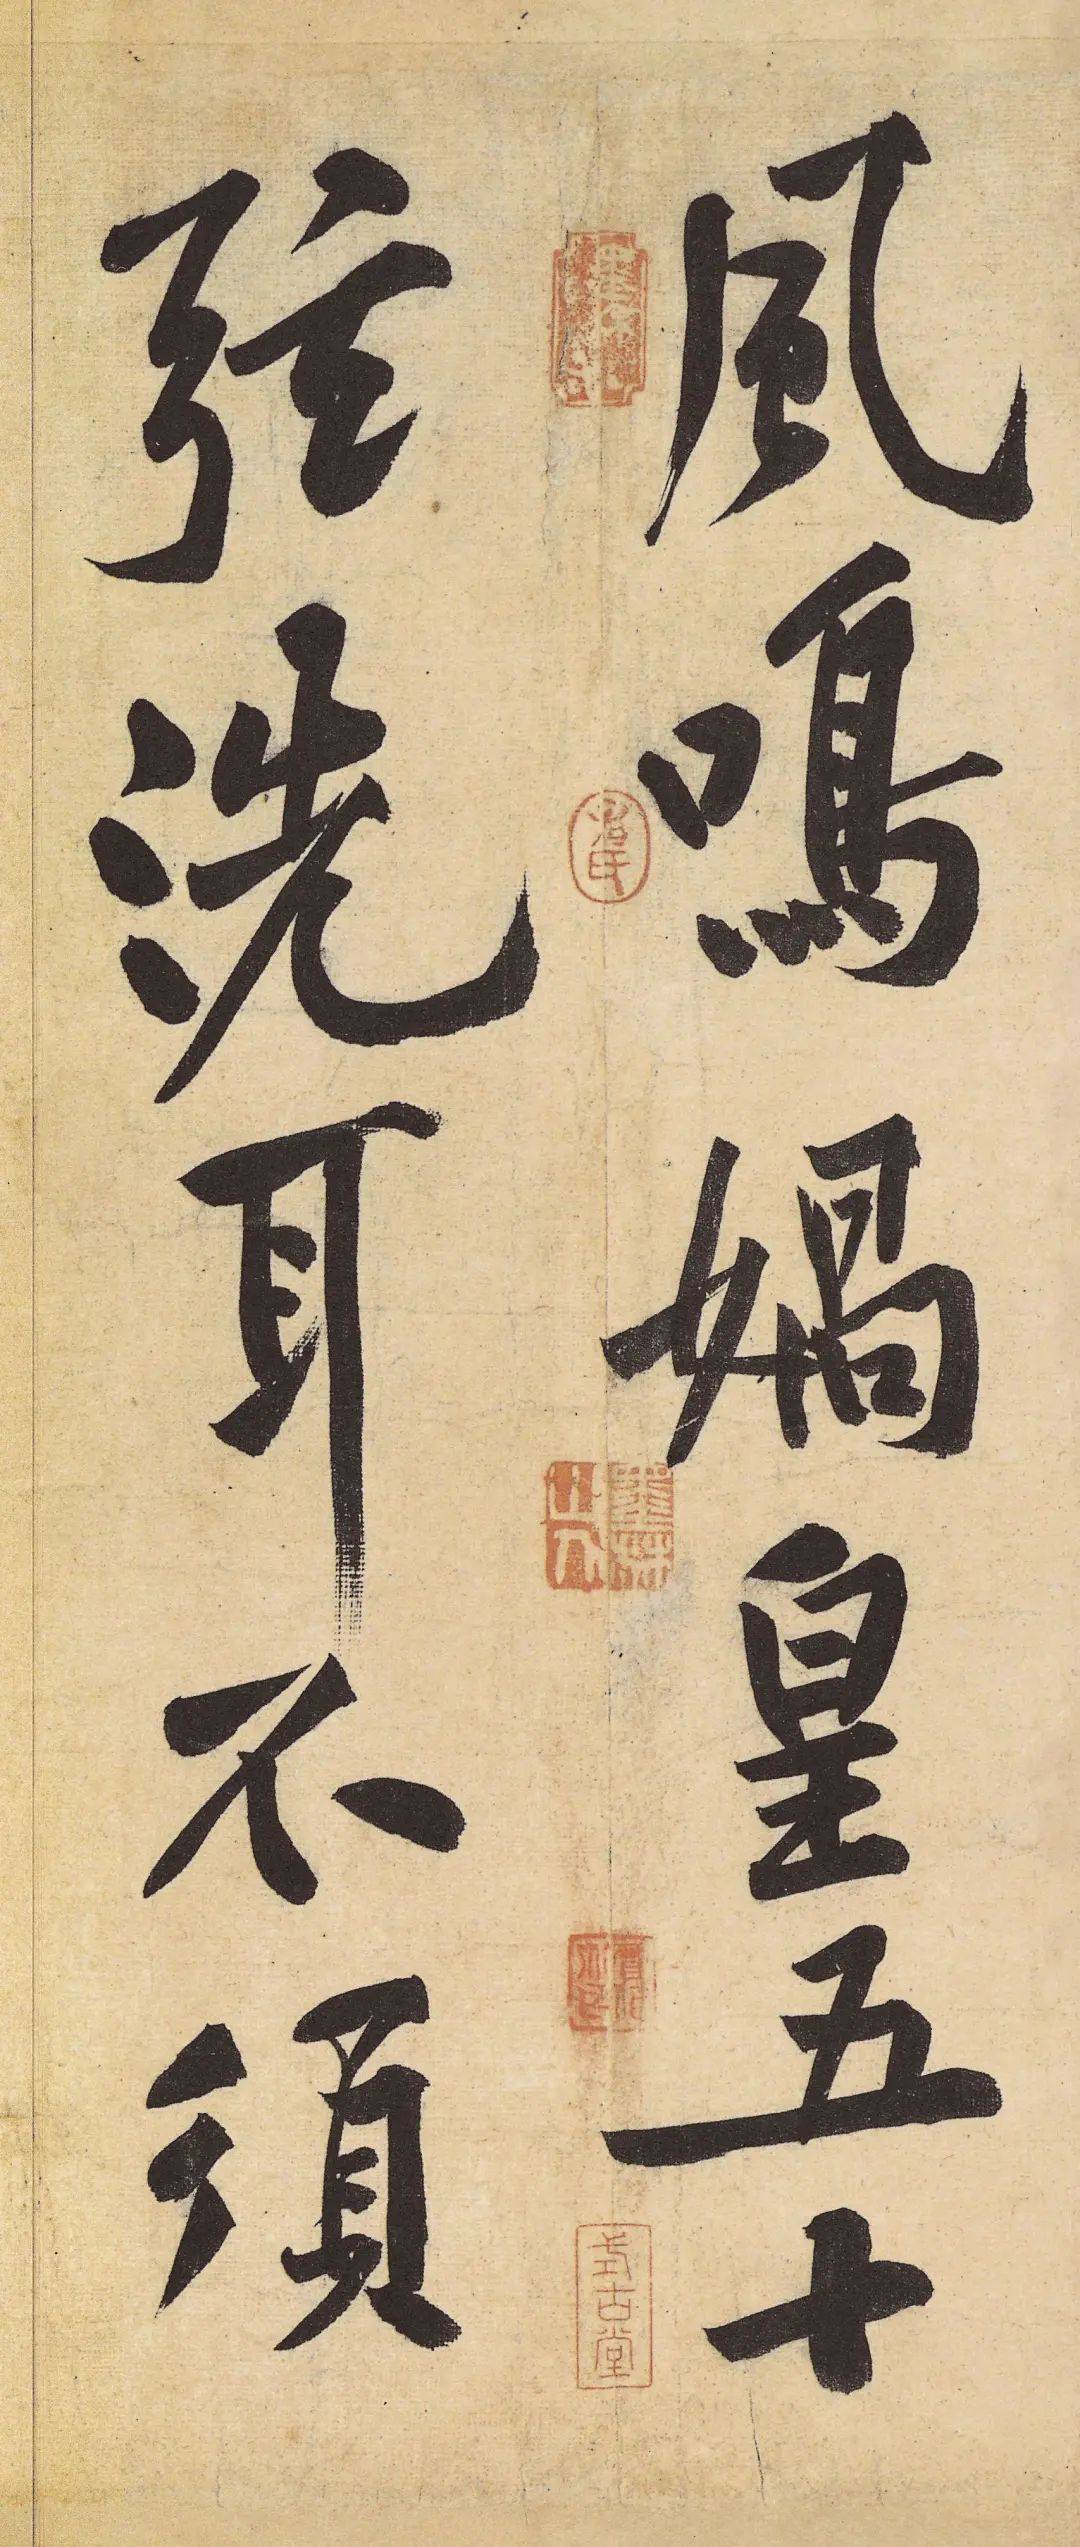 風鳴媧皇五十
弦洗耳不須
式古堂